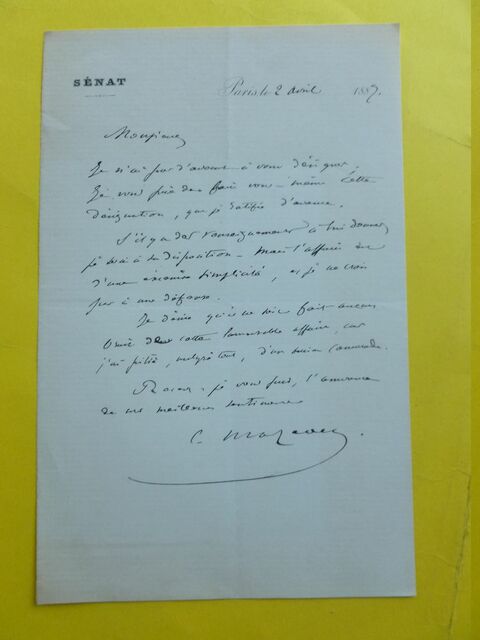 SÉNAT
Paris, le 2 avril 1887.
Monsieur,
Je n'ai pas d'avoué à vous désigner.
Je vous prie de faire vous-même cette
désignation, que je ratifie d'avance.
S'il y a des renseignements à lui donner,
je suis à sa disposition. Mais l'affaire est
d'une extrême simplicité, et je ne crois
pas à une défense.
Je désire qu'il ne soit fait aucun
bruit de cette affaire, car
j'ai pitié, malgré tout, d'un ancien camarade.
Recevez, je vous prie, l'assurance
de mes meilleurs sentiments
C. Mazeau